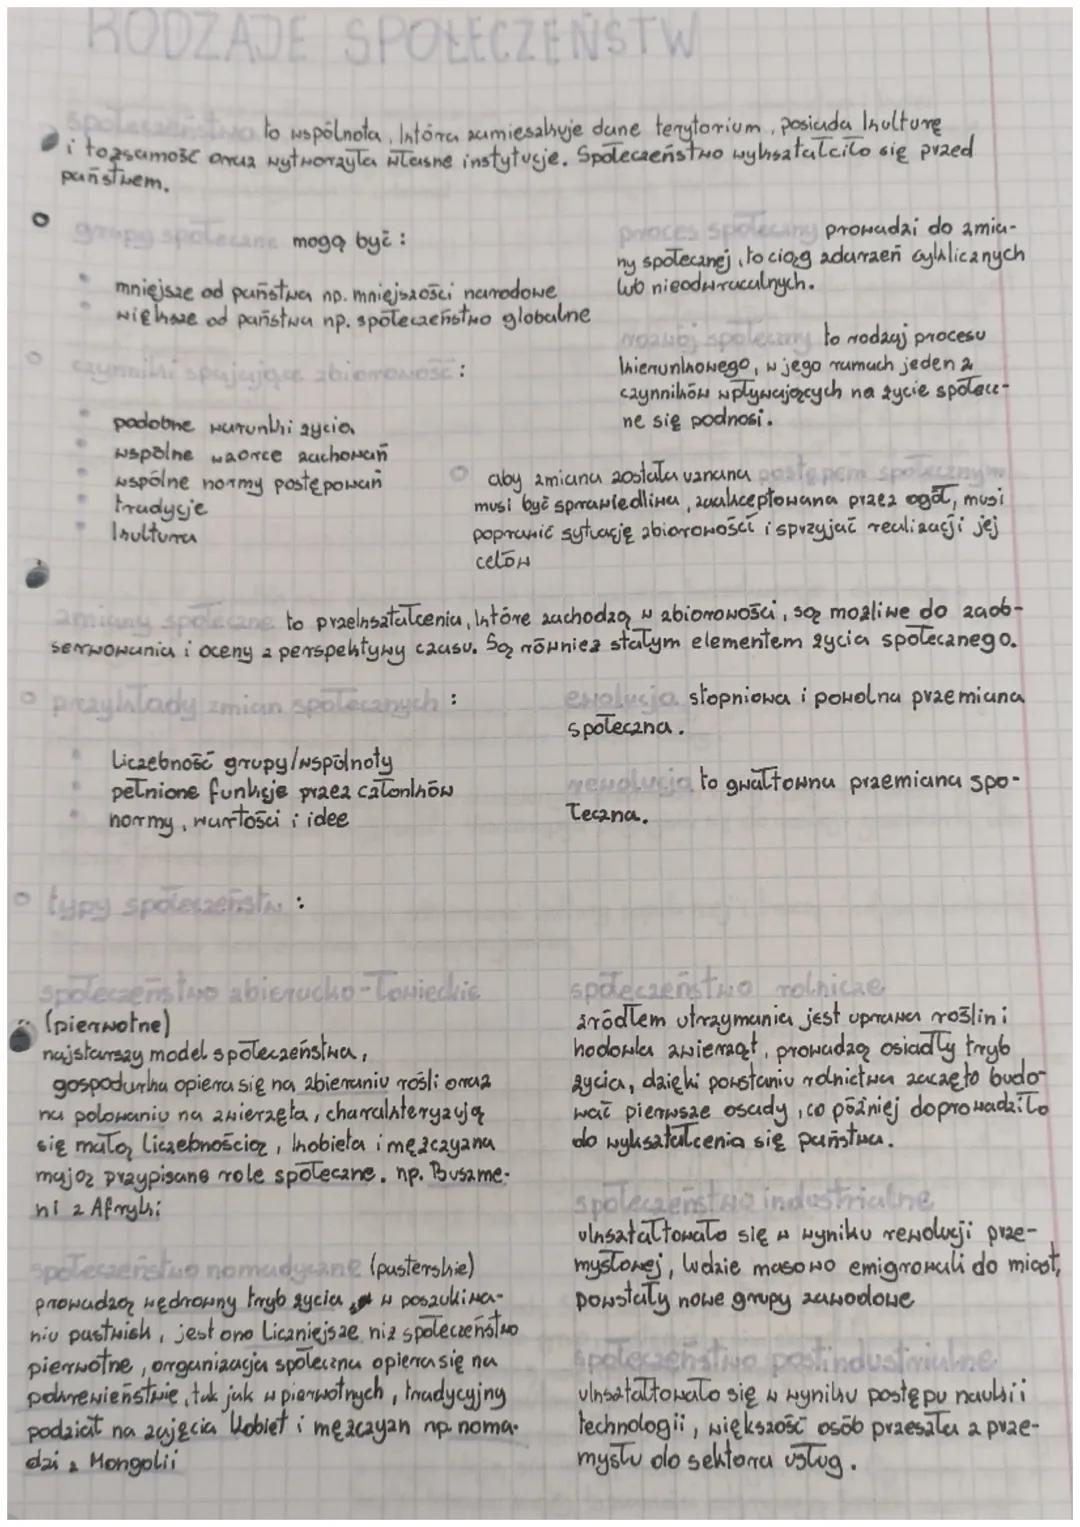 RODZAJE SPOŁECZEŃSTW
społeczeństwo to wspólnota, która zamieszkuje dane terytorium, posiada kulturę
i tożsamość oraz wytworzyła własne instytucje. Społeczeństwo wykształciło się przed
państwem.
grupy społeczne mogą być:
mniejsze od państwa np. mniejszości narodowe
większe od państwa np. społeczeństwo globalne
czynniki spajające zbiorowość:
podobne warunki życia
wspólne wzorce zachowań
wspólne normy postępowań
tradycje
kultura
proces społeczny prowadzi do zmia-
ny społecznej, to ciąg zdarzeń cyklicznych
lub nieodwracalnych.
rozwój społeczny to rodzaj procesu
kierunkowego, w jego ramach jeden z
czynników wpływających na życie społecz-
ne się podnosi.
aby zmiana została uznana postępem społecznym
musi być sprawiedliwa, zaakceptowana przez ogół, musi
poprawić sytuację zbiorowości i sprzyjać realizacji jej
celów
zmiany społeczne to przekształcenia, które zachodzą w zbiorowości, są możliwe do zaob-
serwowania i oceny z perspektywy czasu. Są również stałym elementem życia społecznego.
przykłady zmian społecznych:
liczebność grupy/wspólnoty
pełnione funkcje przez członków
normy, wartości i idee
ewolucja stopniowa i powolna przemiana
społeczna.
rewolucja to gwałtowna przemiana spo-
łeczna.
typy społeczeństw:
społeczeństwo zbieracko-łowieckie
(pierwotne)
najstarszy model społeczeństwa,
gospodarka opiera się na zbieraniu rośli oraz
na polowaniu na zwierzęta, charakteryzują
się małą liczebnością, kobieta i mężczyzna
mają przypisane role społeczne. np. Buszme-
ni z Afryki
społeczeństwo nomadyczne (pasterskie)
prowadzą wędrowny tryb życia w poszukiwa-
niu pastwisk, jest ono liczniejsze niż społeczeństwo
pierwotne, organizacja społeczna opiera się na
pokrewieństwie, tak jak w pierwotnych, tradycyjny
podział na zajęcia kobiet i mężczyzn np. noma-
dzi z Mongolii
społeczeństwo rolnicze
źródłem utrzymania jest uprawa roślin i
hodowla zwierząt, prowadzą osiadły tryb
życia, dzięki powstaniu rolnictwa zaczęto budo-
wać pierwsze osady, co później doprowadziło
do wykształcenia się państwa.
społeczeństwo industrialne
ukształtowało się w wyniku rewolucji prze-
mysłowej, ludzie masowo emigrowali do miast,
powstały nowe grupy zawodowe
społeczeństwo postindustrialne
ukształtowało się w wyniku postępu nauki i
technologii, większość osób przeszła z prze-
mysłu do sektora usług.